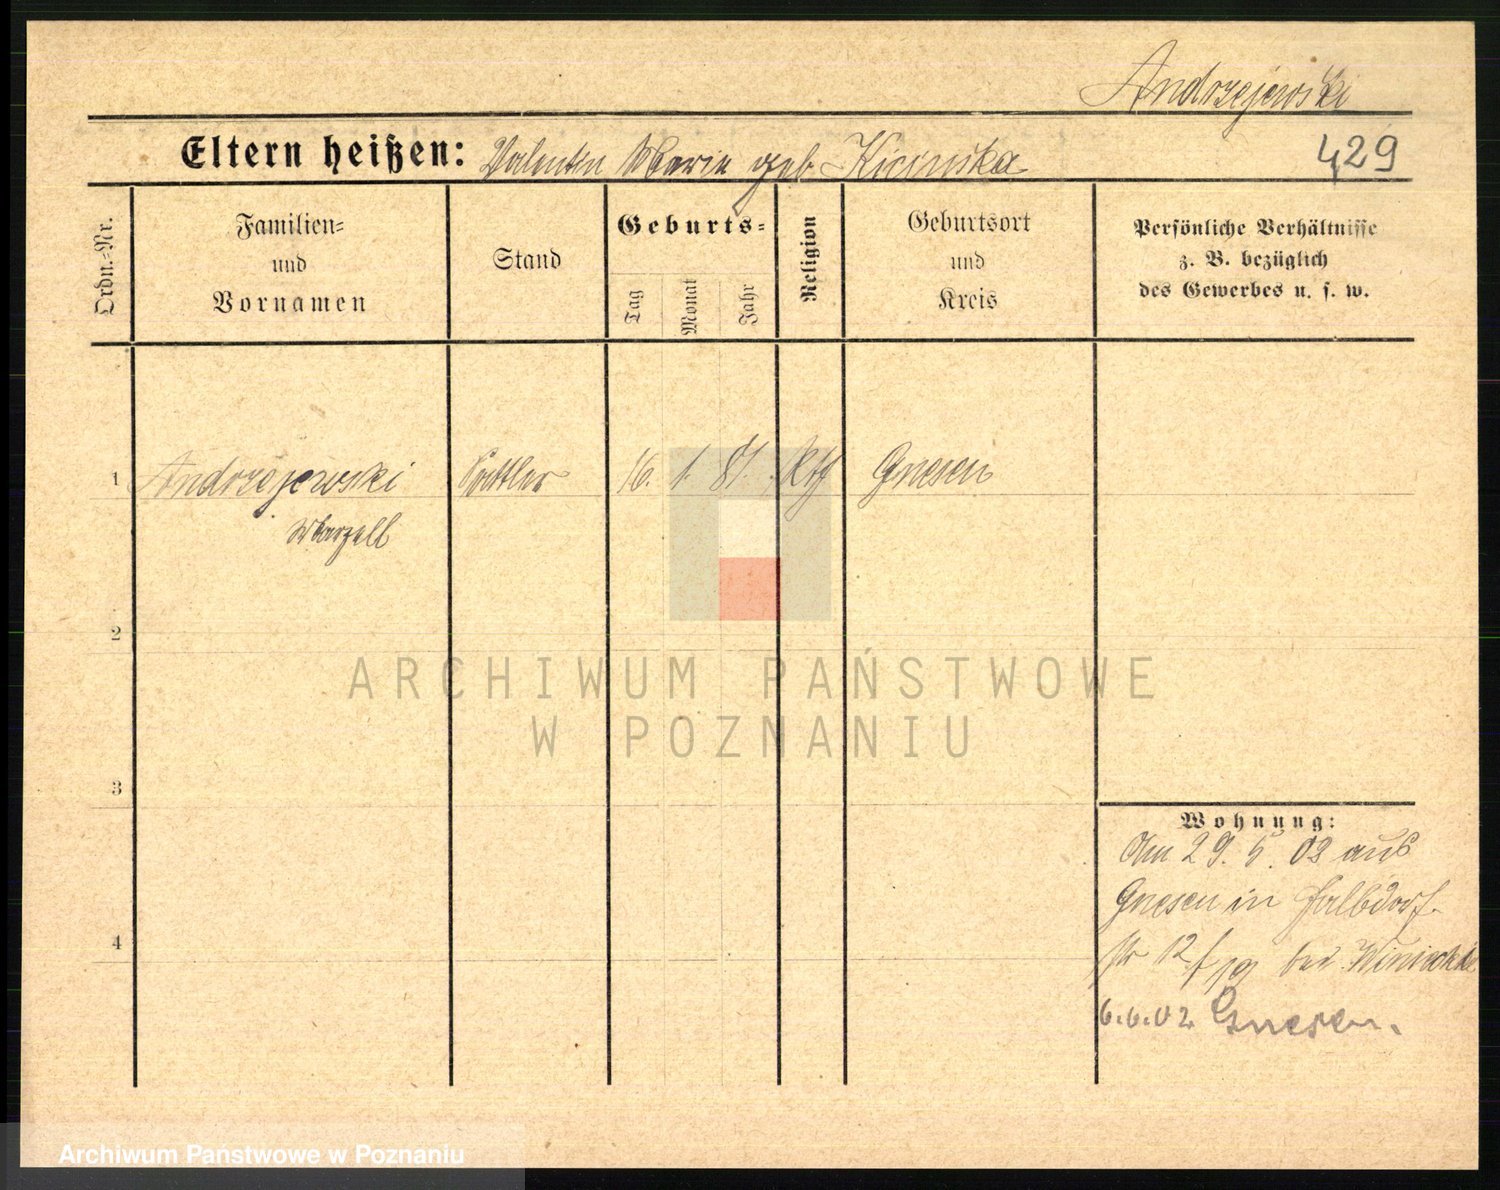 Andrzejewski
Eltern heißen: Valentin Marie geb. Kicinska
429
Ordn.-Nr.
Familien-
und
Vornamen
Stand
Geburts-
Tag
Monat
Jahr
Religion
Geburtsort
und
Kreis
Persönliche Verhältnisse
z. B. bezüglich
des Gewerbes u. s. w.
1 Andrzejewski Sattler 16. 1. 81. Kth Gnesen
Marzell
2
3
4
Wohnung:
Am 29. 5. 02 aus
Gnesen in Halbdorf-
str 12 bei
6.6.02 Gnesen.
ARCHIWUM PAŃSTWOWE
W POZNANIU
Archiwum Państwowe w Poznaniu